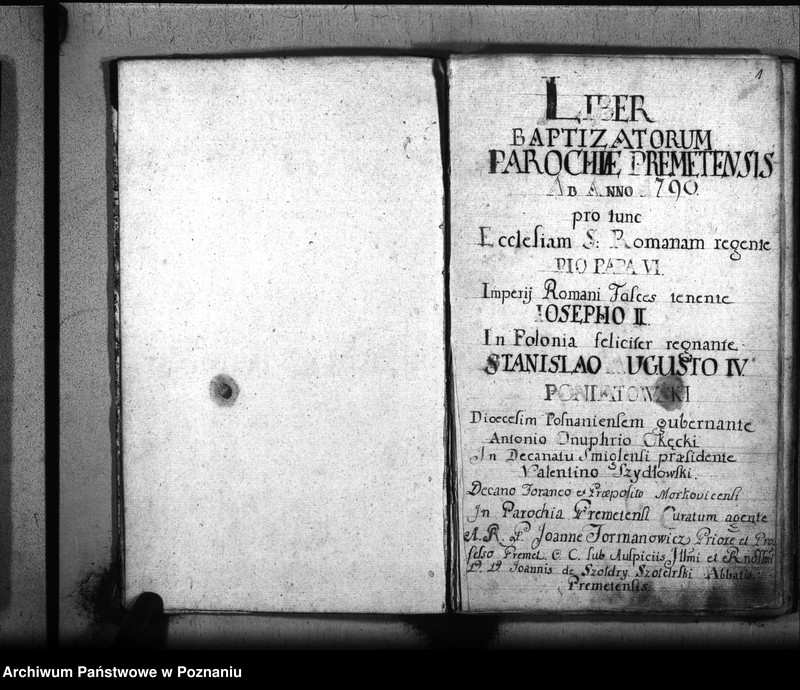 1
LIBER
BAPTIZATORUM
PAROCHIÆ PREMETENSIS
AB ANNO 1790.
pro tunc
Ecclesiam S: Romanam regente
PIO PAPA VI.
Imperij Romani Fasces tenente
IOSEPHO II.
In Polonia feliciter regnante
STANISLAO AUGUSTO IV.
PONIATOWSKI
Dioecesim Posnaniensem gubernante
Antonio Onuphrio Okęcki
In Decanatu Smiglensi præsidente
Valentino Szydłowski.
Decano Foraneo et Præposito Morkovicensi
In Parochia Premetensi Curatum agente
A. R. P. Joanne Formanowicz Priore et Pro
fesso Premet. C. C. sub Auspiciis Illmi et Rndssmi
Joannis de Szołdry Szołdrski Abbatis
Premetensis
Archiwum Państwowe w Poznaniu